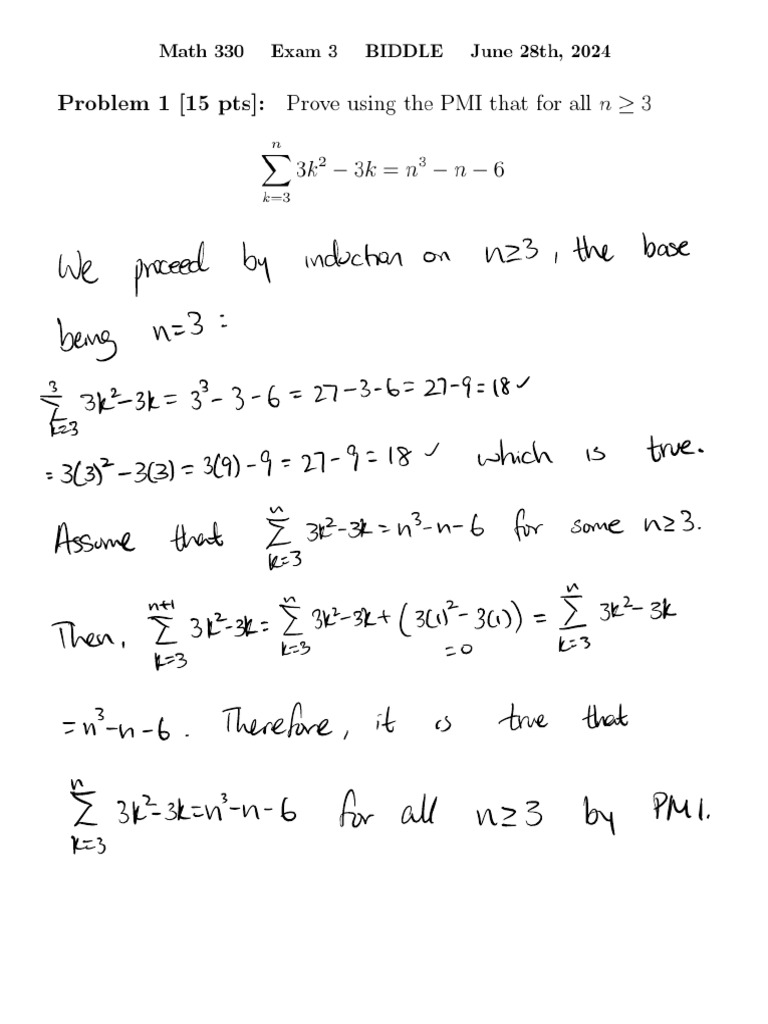 Math 330 Exam 3 BIDDLE June 28th, 2024
Problem 1 [15 pts]: Prove using the PMI that for all n ≥ 3
∑_{k=3}^{n} 3k² − 3k = n³ − n − 6
We proceed by induction on n≥3, the base
being n=3:
∑_{k=3}^{3} 3k²−3k = 3³−3−6 = 27−3−6 = 27−9 = 18 ✓
= 3(3)²−3(3) = 3(9)−9 = 27−9 = 18 ✓ which is true.
Assume that ∑_{k=3}^{n} 3k²−3k = n³−n−6 for some n≥3.
Then, ∑_{k=3}^{n+1} 3k²−3k = ∑_{k=3}^{n} 3k²−3k + (3(1)²−3(1)) = ∑_{k=3}^{n} 3k²−3k
=0
= n³−n−6. Therefore, it is true that
∑_{k=3}^{n} 3k²−3k = n³−n−6 for all n≥3 by PMI.